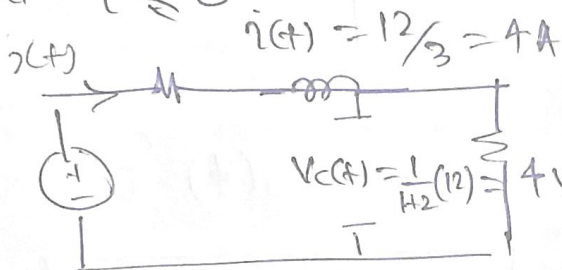 i(t) = 12/3 = 4A
i(t)
+
-
Vc(t) = 1/1+2 (12) = 4V